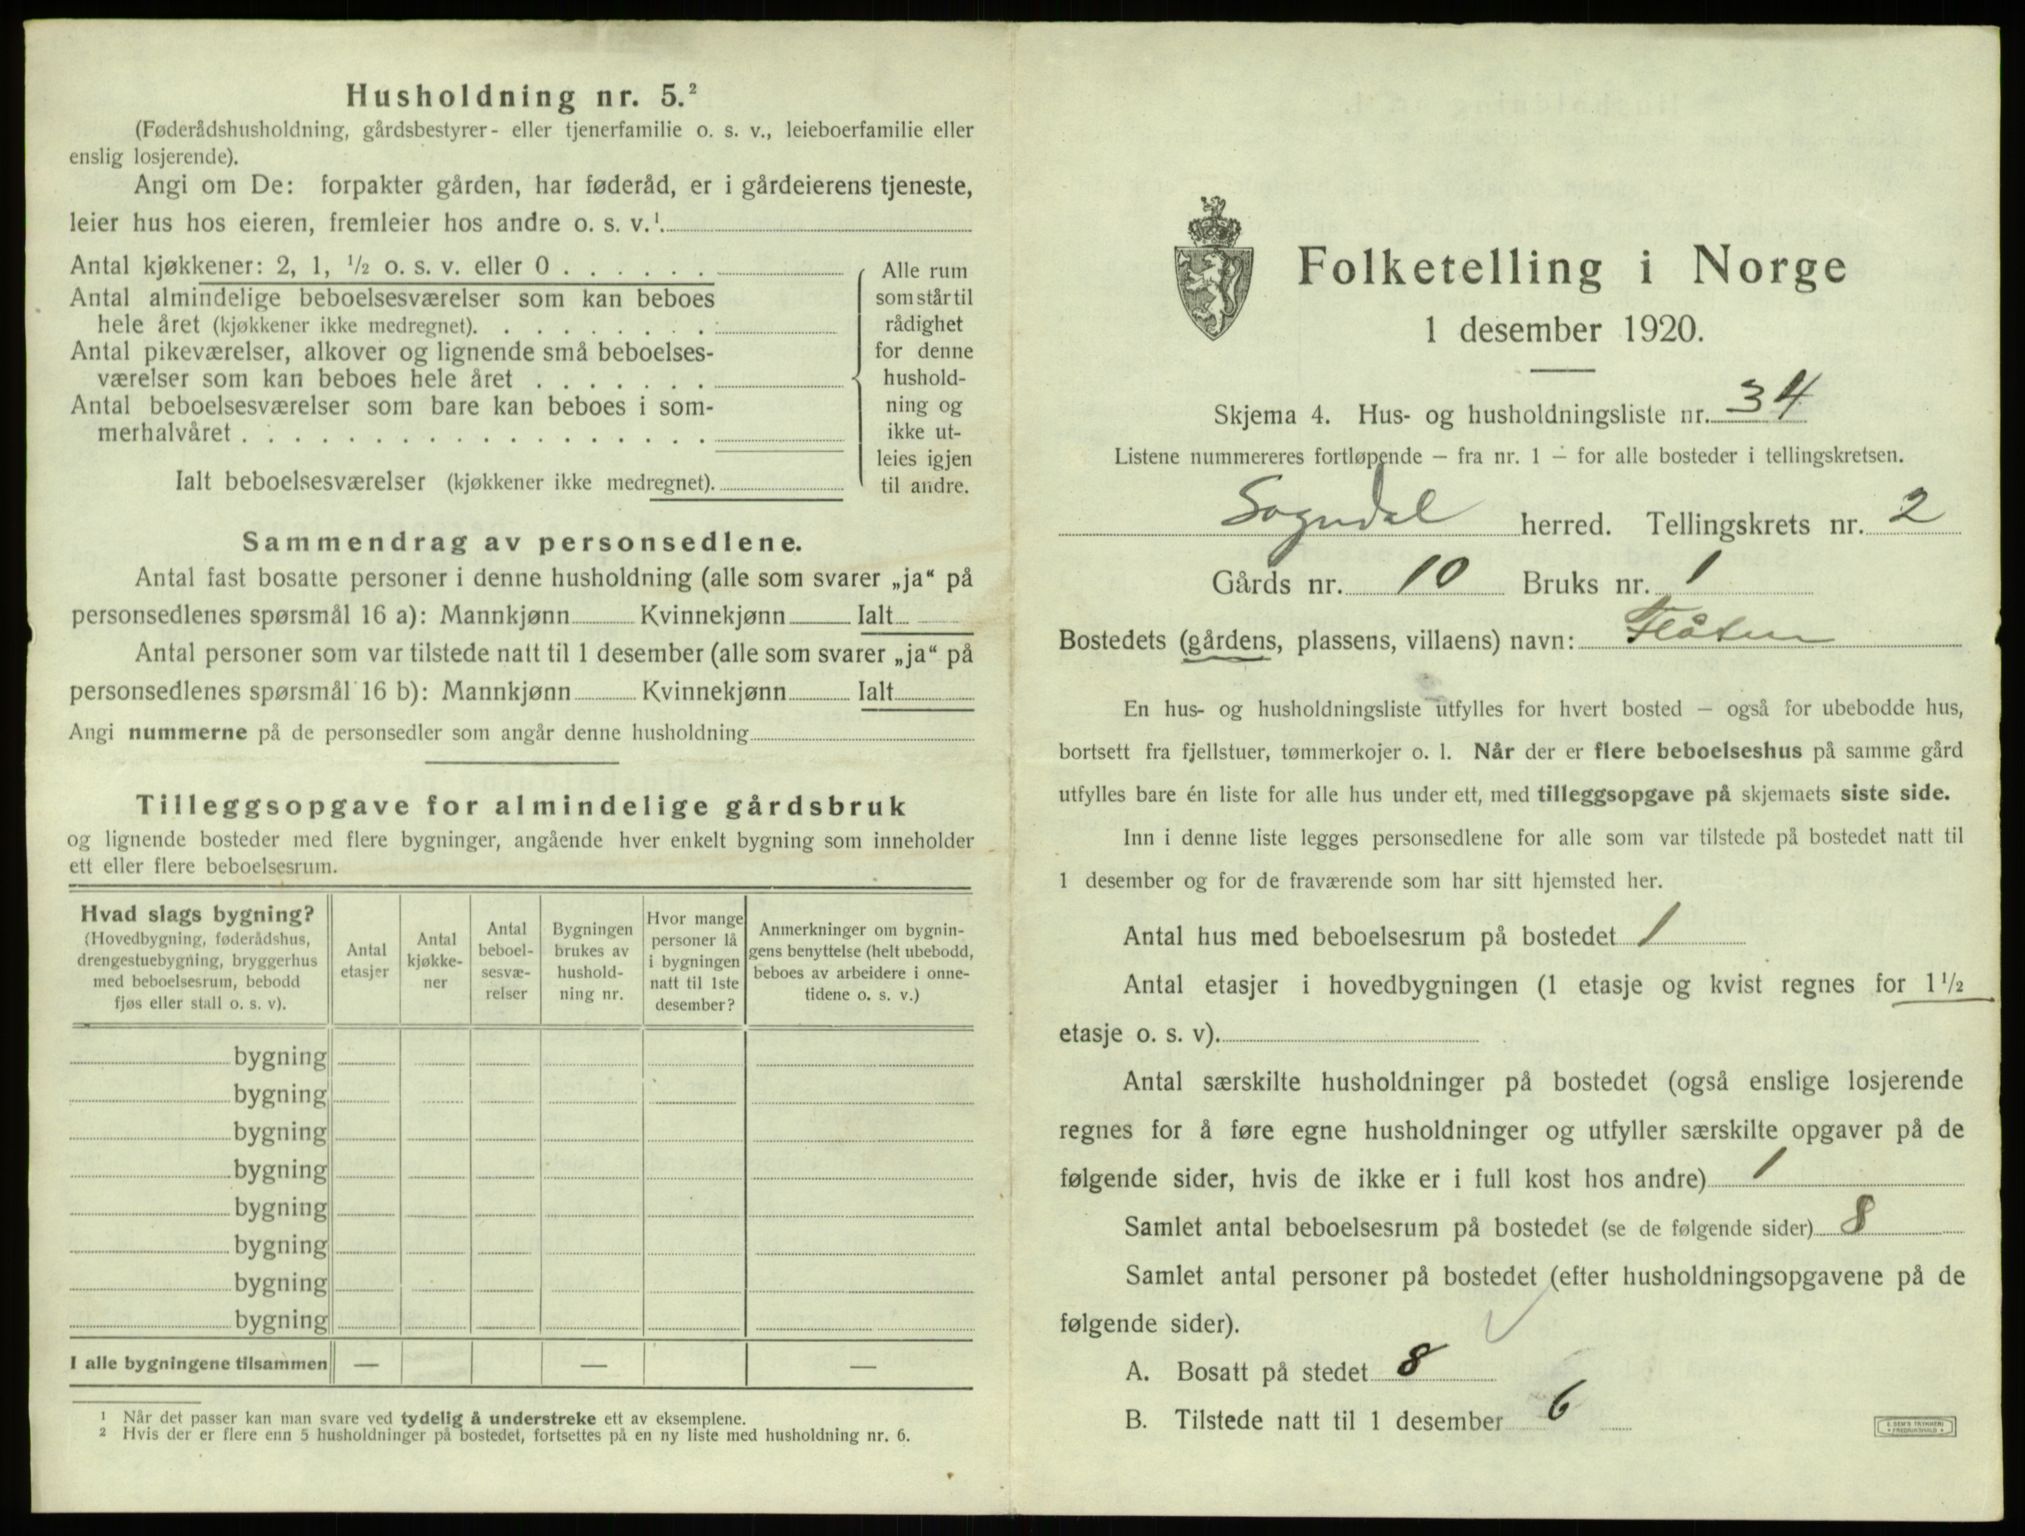 Husholdning nr. 5.²
(Føderådshusholdning, gårdsbestyrer- eller tjenerfamilie o. s. v., leieboerfamilie eller
enslig losjerende).
Angi om De: forpakter gården, har føderåd, er i gårdeierens tjeneste,
leier hus hos eieren, fremleier hos andre o. s. v.¹.
Antal kjøkkener: 2, 1, ½ o. s. v. eller 0 . . . . . .
Antal almindelige beboelsesværelser som kan beboes
hele året (kjøkkener ikke medregnet). . . . . . . . .
Antal pikeværelser, alkover og lignende små beboelses-
værelser som kan beboes hele året . . . . . . .
Antal beboelsesværelser som bare kan beboes i som-
merhalvåret . . . . . . . . . . . . . . . . . .
Ialt beboelsesværelser (kjøkkener ikke medregnet).
Alle rum
som står til
rådighet
for denne
hushold-
ning og
ikke ut-
leies igjen
til andre.
Sammendrag av personsedlene.
Antal fast bosatte personer i denne husholdning (alle som svarer „ja“ på
personsedlenes spørsmål 16 a): Mannkjønn Kvinnekjønn Ialt
Antal personer som var tilstede natt til 1 desember (alle som svarer „ja“ på
personsedlenes spørsmål 16 b): Mannkjønn Kvinnekjønn Ialt
Angi nummerne på de personsedler som angår denne husholdning
Tilleggsopgave for almindelige gårdsbruk
og lignende bosteder med flere bygninger, angående hver enkelt bygning som inneholder
ett eller flere beboelsesrum.
Hvad slags bygning?
(Hovedbygning, føderådshus,
drengestuebygning, bryggerhus
med beboelsesrum, bebodd
fjøs eller stall o. s. v).
Antal
etasjer
Antal
kjøkke-
ner
Antal
beboel-
sesvæ-
relser
Bygningen
brukes av
hushold-
ning nr.
Hvor mange
personer lå
i bygningen
natt til 1ste
desember?
Anmerkninger om bygnin-
gens benyttelse (helt ubebodd,
beboes av arbeidere i onne-
tidene o. s. v.)
bygning
bygning
bygning
bygning
bygning
bygning
bygning
bygning
I alle bygningene tilsammen — — —
¹ Når det passer kan man svare ved tydelig å understreke ett av eksemplene.
² Hvis der er flere enn 5 husholdninger på bostedet, fortsettes på en ny liste med husholdning nr. 6.
Folketelling i Norge
1 desember 1920.
Skjema 4. Hus- og husholdningsliste nr. 34
Listene nummereres fortløpende – fra nr. 1 – for alle bosteder i tellingskretsen.
Sogndal herred. Tellingskrets nr. 2
Gårds nr. 10 Bruks nr. 1
Bostedets (gårdens, plassens, villaens) navn: Flåten
En hus- og husholdningsliste utfylles for hvert bosted – også for ubebodde hus,
bortsett fra fjellstuer, tømmerkojer o. l. Når der er flere beboelseshus på samme gård
utfylles bare én liste for alle hus under ett, med tilleggsopgave på skjemaets siste side.
Inn i denne liste legges personsedlene for alle som var tilstede på bostedet natt til
1 desember og for de fraværende som har sitt hjemsted her.
Antal hus med beboelsesrum på bostedet 1
Antal etasjer i hovedbygningen (1 etasje og kvist regnes for 1½
etasje o. s. v).
Antal særskilte husholdninger på bostedet (også enslige losjerende
regnes for å føre egne husholdninger og utfyller særskilte opgaver på de
følgende sider, hvis de ikke er i full kost hos andre) 1
Samlet antal beboelsesrum på bostedet (se de følgende sider) 8
Samlet antal personer på bostedet (efter husholdningsopgavene på de
følgende sider).
A. Bosatt på stedet 8
B. Tilstede natt til 1 desember 6
E. SEM'S TRYKKERI
FREDRIKSHALD